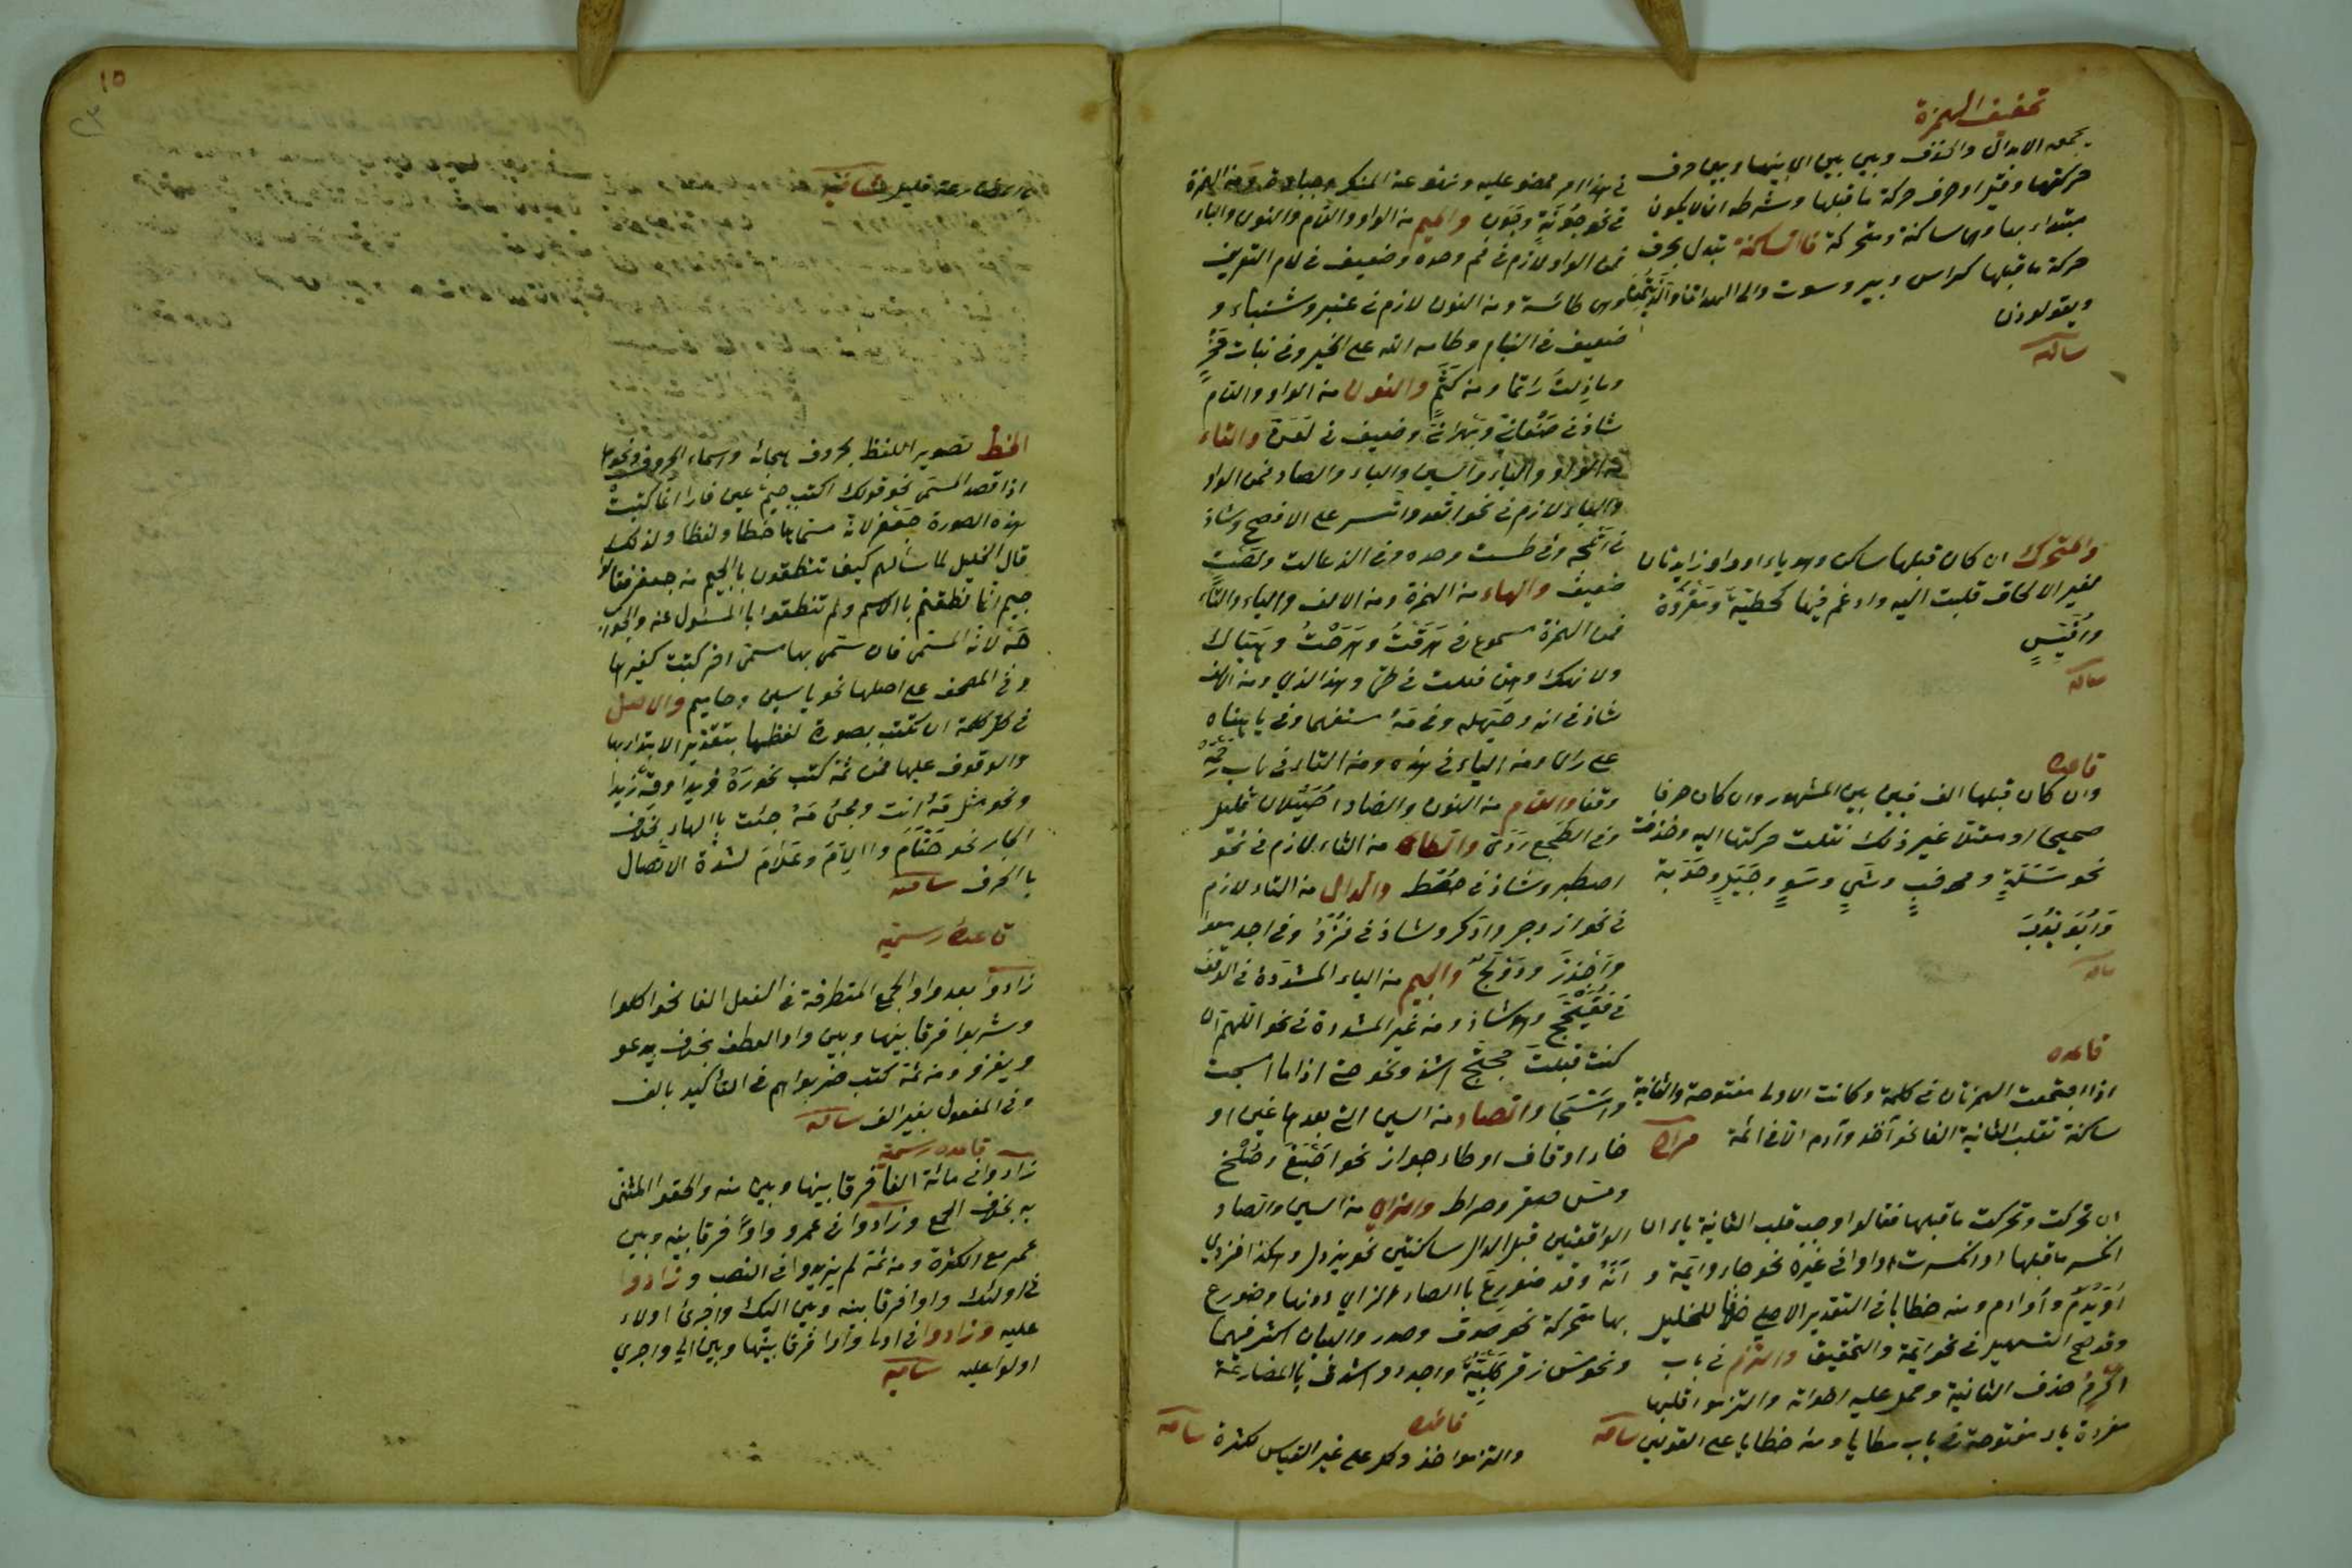 تخفيف الهمزة
يجمعه الابدال والحذف وبين بين اى بينها وبين حرف
حركتها وقيل او حرف حركة ما قبلها وشرطه ان لا يكون
مبتداء بها وهى ساكنة ومتحركة فالساكنة تبدل بحرف
حركة ما قبلها كراس وبير وسوت والى الهداتنا والذيتمن
ويقولوذن
ساكنه
والمتحرك ان كان قبلها ساكن وهو ياء او واو زايدتان
لغير الالحاق قلبت اليه وادغم فيها كخطيّة ومقروّة
وافيّس
قاعده
وان كان قبلها الف فبين بين المشهور وان كان حرفا
صحيحا او معتلا غير ذلك نقلت حركتها اليه وحذفت
نحو مَسَلَة و وشَي وسَو وجَيَل وحَوَبة
وابُوَيّوب
قاعده
اذا اجتمعت الهمزتان فى كلمة وكانت الاولى مفتوحة والثانية
ساكنة تقلب الثانية الفا نحو آخذ وآدم الا فى ائمة
ان تحركت وتحركت ما قبلها فقالوا وجب قلب الثانية ياء ان
انكسر ما قبلها او انكسرت او واوا فى غيره نحو جاء وايمة و
اُوَيدم وأوادم ومنه خطايا فى التقدير الاصلي خلافا للخليل
وقد صح التسهيل فى نحو ايمة والتحقيق والتزم فى باب
اكرم حذف الثانية وحمل عليه اخواته والتزموا قلبها
مفردة ياء مفتوحة فى باب مطايا ومنه خطايا على القولين
فى هذا امر ممضو عليه ونهو عن المنكر وجباوة ومن الهمزة
فى نحو جُونَةٍ وجُوَن والميم من الواو واللام والنون والباء
فمن الواو لازم فى فم وحده وضعيف فى لام التعريف
وهى طائية ومن النون لازم فى عنبر وشنباء و
ضعيف فى البنام وطامه الله على الخير وفى بنات مَخْرٍ
وما زلت راتما ومن كَثَمٍ والنون من الواو واللام
شاذ فى صَنْعانى وبَهرانى وضعيف فى لعَنّ والتاء
من الواو والياء والسين والباء والصاد فمن الواو
والياء لازم فى نحو اتعد واتسر على الافصح وشاذ
فى اتلجه وفى طست وحده وفى الذعالت ولصت
ضعيف والهاء من الهمزة ومن الالف والياء والتاء
فمن الهمزة مسموع فى هَرقْتُ وهَرَحْتُ وهَيّاك
ولهنك وهن فعلت فى طئ وهذا الذي ومن الالف
شاذ فى انه وحيّهله وفى مَهْ مستفهما وفى يا هناه
على راى ومن الياء فى هذه ومن التاء فى باب رحمه
وقفا واللام من النون والضاد اُصَيْلال قليل
وفى الطجع ردىّ والطاء من التاء لازم فى نحو
اصطبر وشاذ فى حُصْط والدال من التاء لازم
فى نحو ازدجر واذكر وشاذ فى فُزْدُ وفى اجدمعوا
واَجْدَزَّ ودَوْلَجٍ والجيم من الياء المشددة فى الوقف
فى فُقَيْمِجّ وهو شاذ ومن غير المشددة فى نحو اللهم ان
كنت قبلتَ حجتج اشذ ونحو حتى اذا ما امسجت
وامسَجا والصاد من السين التى بعدها غين او
خاء او قاف او طاء جوازا نحو اَصْبَغَ وصَلَخ
ومسّ صقر وصراط والزاى من السين والصاد
الواقعتين قبل الدال ساكنتين نحو يزدل وهكذا فزدي
انَهْ وقد ضورع بالصاد الزاي دونها وضورع
بها متحركة نحو صدق وصدر والبيان اكثر فيهما
ونحو مسّ زقر كَلْبِيّةٌ واجدر واشدق بالمضارعة
قاعده
والتزموا خذ وكل على غير القياس لكثرة
١٥
٢٣
قليل
الخط تصوير اللفظ بحروف هجائه واسماء الحروف ونحوها
اذا قصد المسمى نحو قولك اكتب جيم عين فا را انما كتبت
هذه الصورة جَعْفر لانه مسماها خطا ولفظا ولذلك
قال الخليل لما سألهم كيف تنطقون بالجيم من جعفر فقالوا
جيم انما نطقتم بالاسم ولم تنطقوا بالمسئول عنه والجواب
جَهْ لانه المسمى فان سمّى بها مسمى اخر كتبت كغيرها
وفى المصحف على اصلها نحو ياسين وحاميم والاصل
فى كل كلمة ان تكتب بصورة لفظها بتقدير الابتداء بها
والوقوف عليها فمن ثمة كتب نحو رَهْ زيدا وقهْ زيدا
ونحو مثل مَهْ انت ومجئ مَهْ جئت بالهاء بخلاف
الجار نحو حَتّامَ والامَ وعَلامَ لشدة الاتصال
بالحرف
قاعدة رسمية
زادوا بعد واو الجمع المتطرفة فى الفعل الفا نحو اكلوا
وشربوا فرقا بينها وبين واو العطف بخلاف يدعو
ويغزو ومن ثمة كتب ضربوا هم فى التأكيد بالف
وفى المفعول بغير الف
قاعده رسمية
زادوا فى مائة الفا فرقا بينها وبين منه والحقوا المثنى
به بخلاف الجمع وزادوا فى عمرو واوًا فرقا بينه وبين
عمر مع الكثرة ومن ثمة لم يزيدوا فى النصب وزادوا
فى اولئك واوا فرقا بينه وبين اليك واجرى اولاء
عليه وزادوا فى اولى واوا فرقا بينها وبين الى واجرى
اولوا عليه